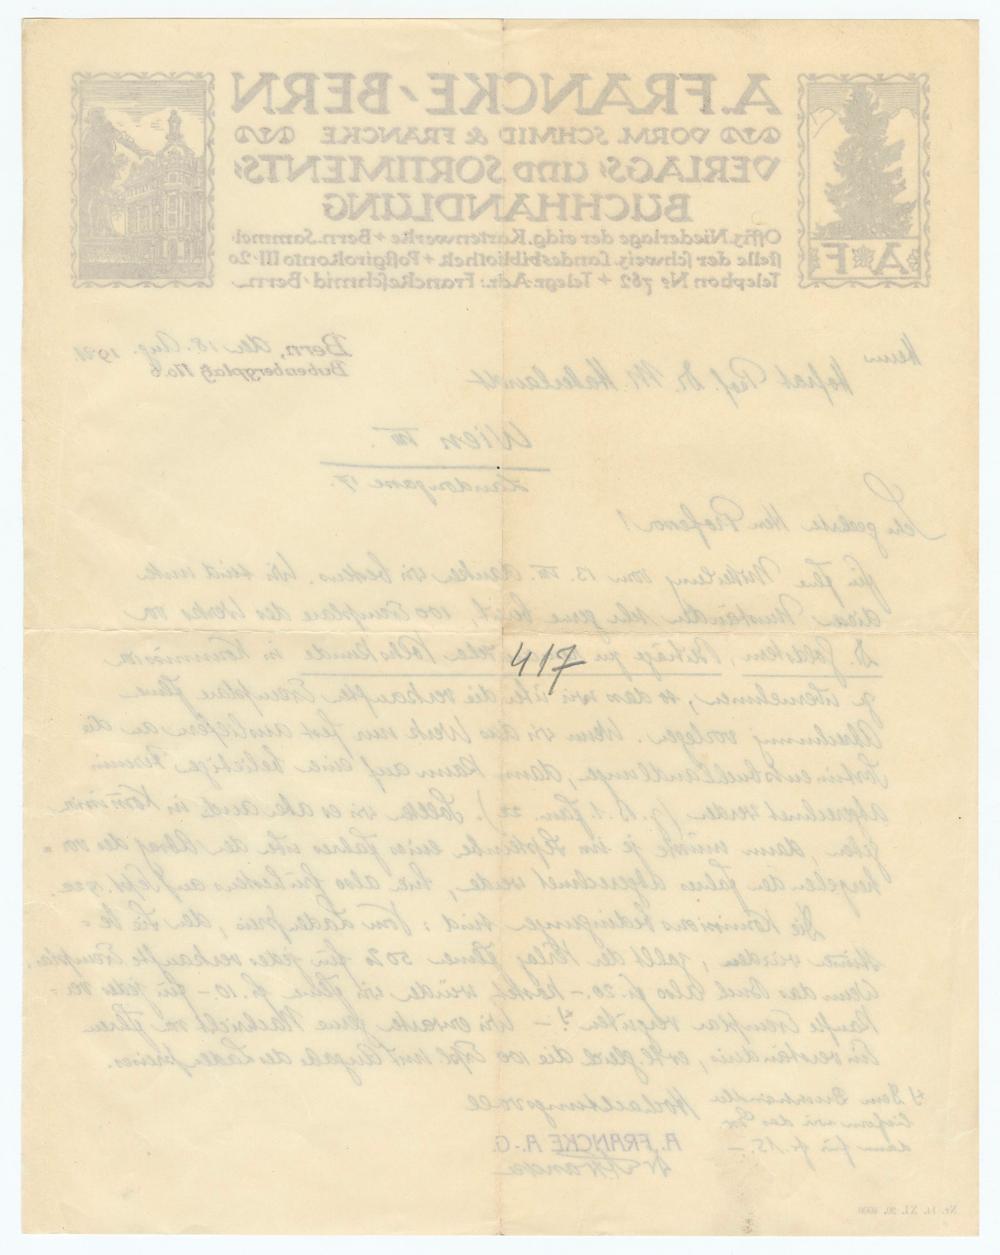 A. FRANCKE, BERN
VORM. SCHMID & FRANCKE
VERLAGS- und SORTIMENTS-
BUCHHANDLUNG
Offiz. Niederlage der eidg. Kartenwerke + Bern. Sammel-
stelle der schweiz. Landesbibliothek + Postgirokonto III·20
Telephon No 762 + Telegr.-Adr.: Franckeschmid-Bern
A F
Bern, den 18. Aug. 1921
Bubenbergplatz No. 6
Herrn
Hofrat Prof. Dr. M. Haberlandt
Wien VIII.
Laudongasse 17.
Sehr geehrter Herr Professor!
für Ihre Mitteilung vom 13. VIII. danken wir bestens. Wir sind unter
Umständen sehr gerne bereit, 100 Exemplare des Werkes von
417
Dr. Goldstern, Beiträge zur Volkskunde in Kommission
zu übernehmen, so dass wir über die verkauften Exemplare Ihnen
Abrechnung vorlegen. Wenn wir das Werk nur fest ausliefern an die
Sortimentsbuchhandlungen, dann kann auf eine beliebige Termin
abgerechnet werden (z. B. 1. Jan. 22). Sollten wir es aber auch in Kommission
geben, dann müsste je im September eines Jahres über den Absatz des vor-
hergehenden Jahres abgerechnet werden, hier also frühestens auf Sept. 1922.
Die Kommissionsbedingungen sind: Vom Ladenpreis, den Sie be-
stimmen würden, zahlt der Verlag Ihnen 50% für jedes verkaufte Exemplar.
Wenn das Buch also fr. 20.- kostet, würden wir Ihnen fr. 10.- für jedes ver-
kaufte Exemplar vergüten. - Wir erwarten gerne Nachricht von Ihnen
Einverständnis, evtl. gleich die 100 Expl. mit Angabe des Ladenpreises.
Hochachtungsvoll
Dem Buchhändler
liefern wir das Ex.
dann für fr. 15.-
A. FRANCKE A.-G.
Nr. 14. XI. 20. 4000